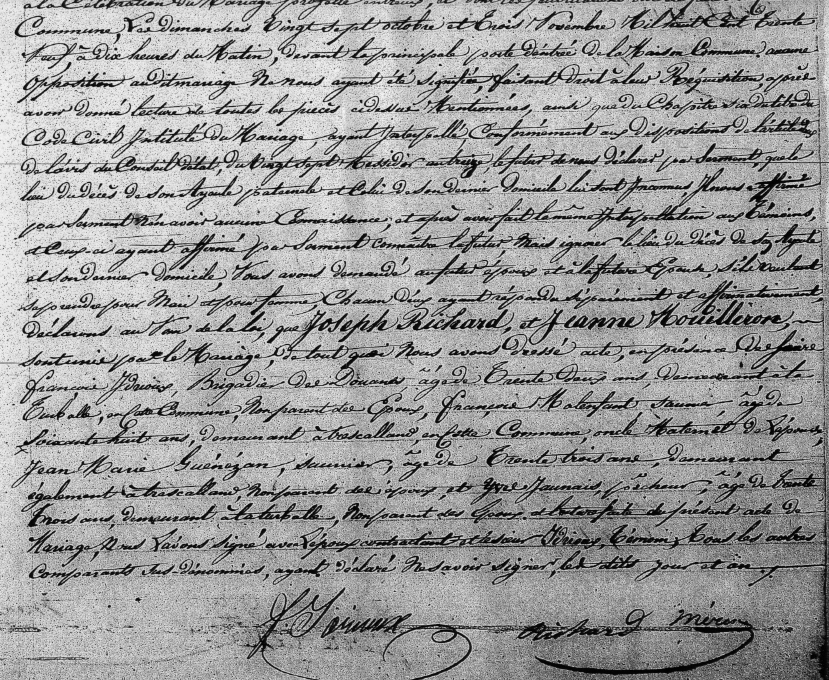 à la Célébration du Mariage projetté entr'eux, et dont les publications
Commune, Les dimanches Vingt sept octobre et Trois Novembre Mil huit Cent Trente
Neuf, à Dix heures du Matin, devant la principale porte d'entrée de la Maison Commune. aucune
Opposition audit mariage Ne nous ayant été signifiée, faisant droit à leur Réquisition après
avoir donné lecture de toutes les pièces cidessus Mentionnées, ainsi que du Chapitre six du titre du
Code Civil Intitulé du Mariage, ayant Interpellé Conformément aux Dispositions de
de l'avis du Conseil d'état, du Vingt sept Messidor an treize, le futur de nous déclarer par Serment, que le
lieu de décès de son Ayeule paternele et Celui de son dernier domicile lui sont Inconnus Il nous a affirmé
par Serment N'en avoir aucune Connaissance, et après avoir fait la même Interpellation aux Témoins,
et Ceux ci ayant affirmé par Serment connaitre le futur Mais ignorer le lieu du décès de son Ayeule
et son dernier domicile, Nous avons demandé au futur époux et à la future Epouse, s'ils veulent
se prendre pour Mari et pour femme, Chacun d'eux ayant répondu séparément et affirmativement,
déclarons au Nom de la loi, que Joseph Richard, et Jeanne Mouilleron,
sont unis par le Mariage, de tout quoi Nous avons dressé acte, en présence de
françois Brigadier des Douanes, âgé de Trente deux ans, demeurant à la
Turballe, en cette Commune, Non parent des Epoux, françois Malenfant Saunier, âgé de
Soixante huit ans, demeurant à trescalland, en Cette Commune, oncle Maternel de L'épouse,
Jean Marie Guénézan, saunier, âgé de Trente trois ans, demeurant
également à trescalland, Non parent des époux, et Yves Jaunais, pêcheur, âgé de trente
trois ans, demeurant à la turballe, Non parent des Epoux, et lecture faite du présent acte de
Mariage, Nous L'avons signé avec L'époux contractant et le sieur Témoin, Tous les autres
Comparants Sus-dénommés, ayant déclaré Ne savoir signer, les dits jour et an.
Richard